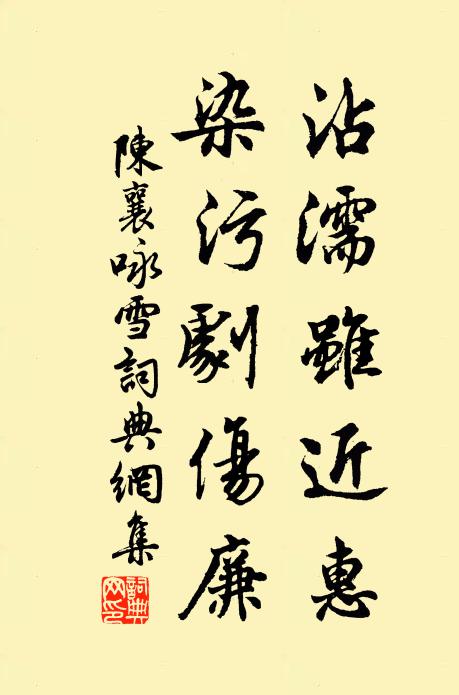 沾濡雖近惠
染污劇傷廉
陳襄咏雪詞典網集